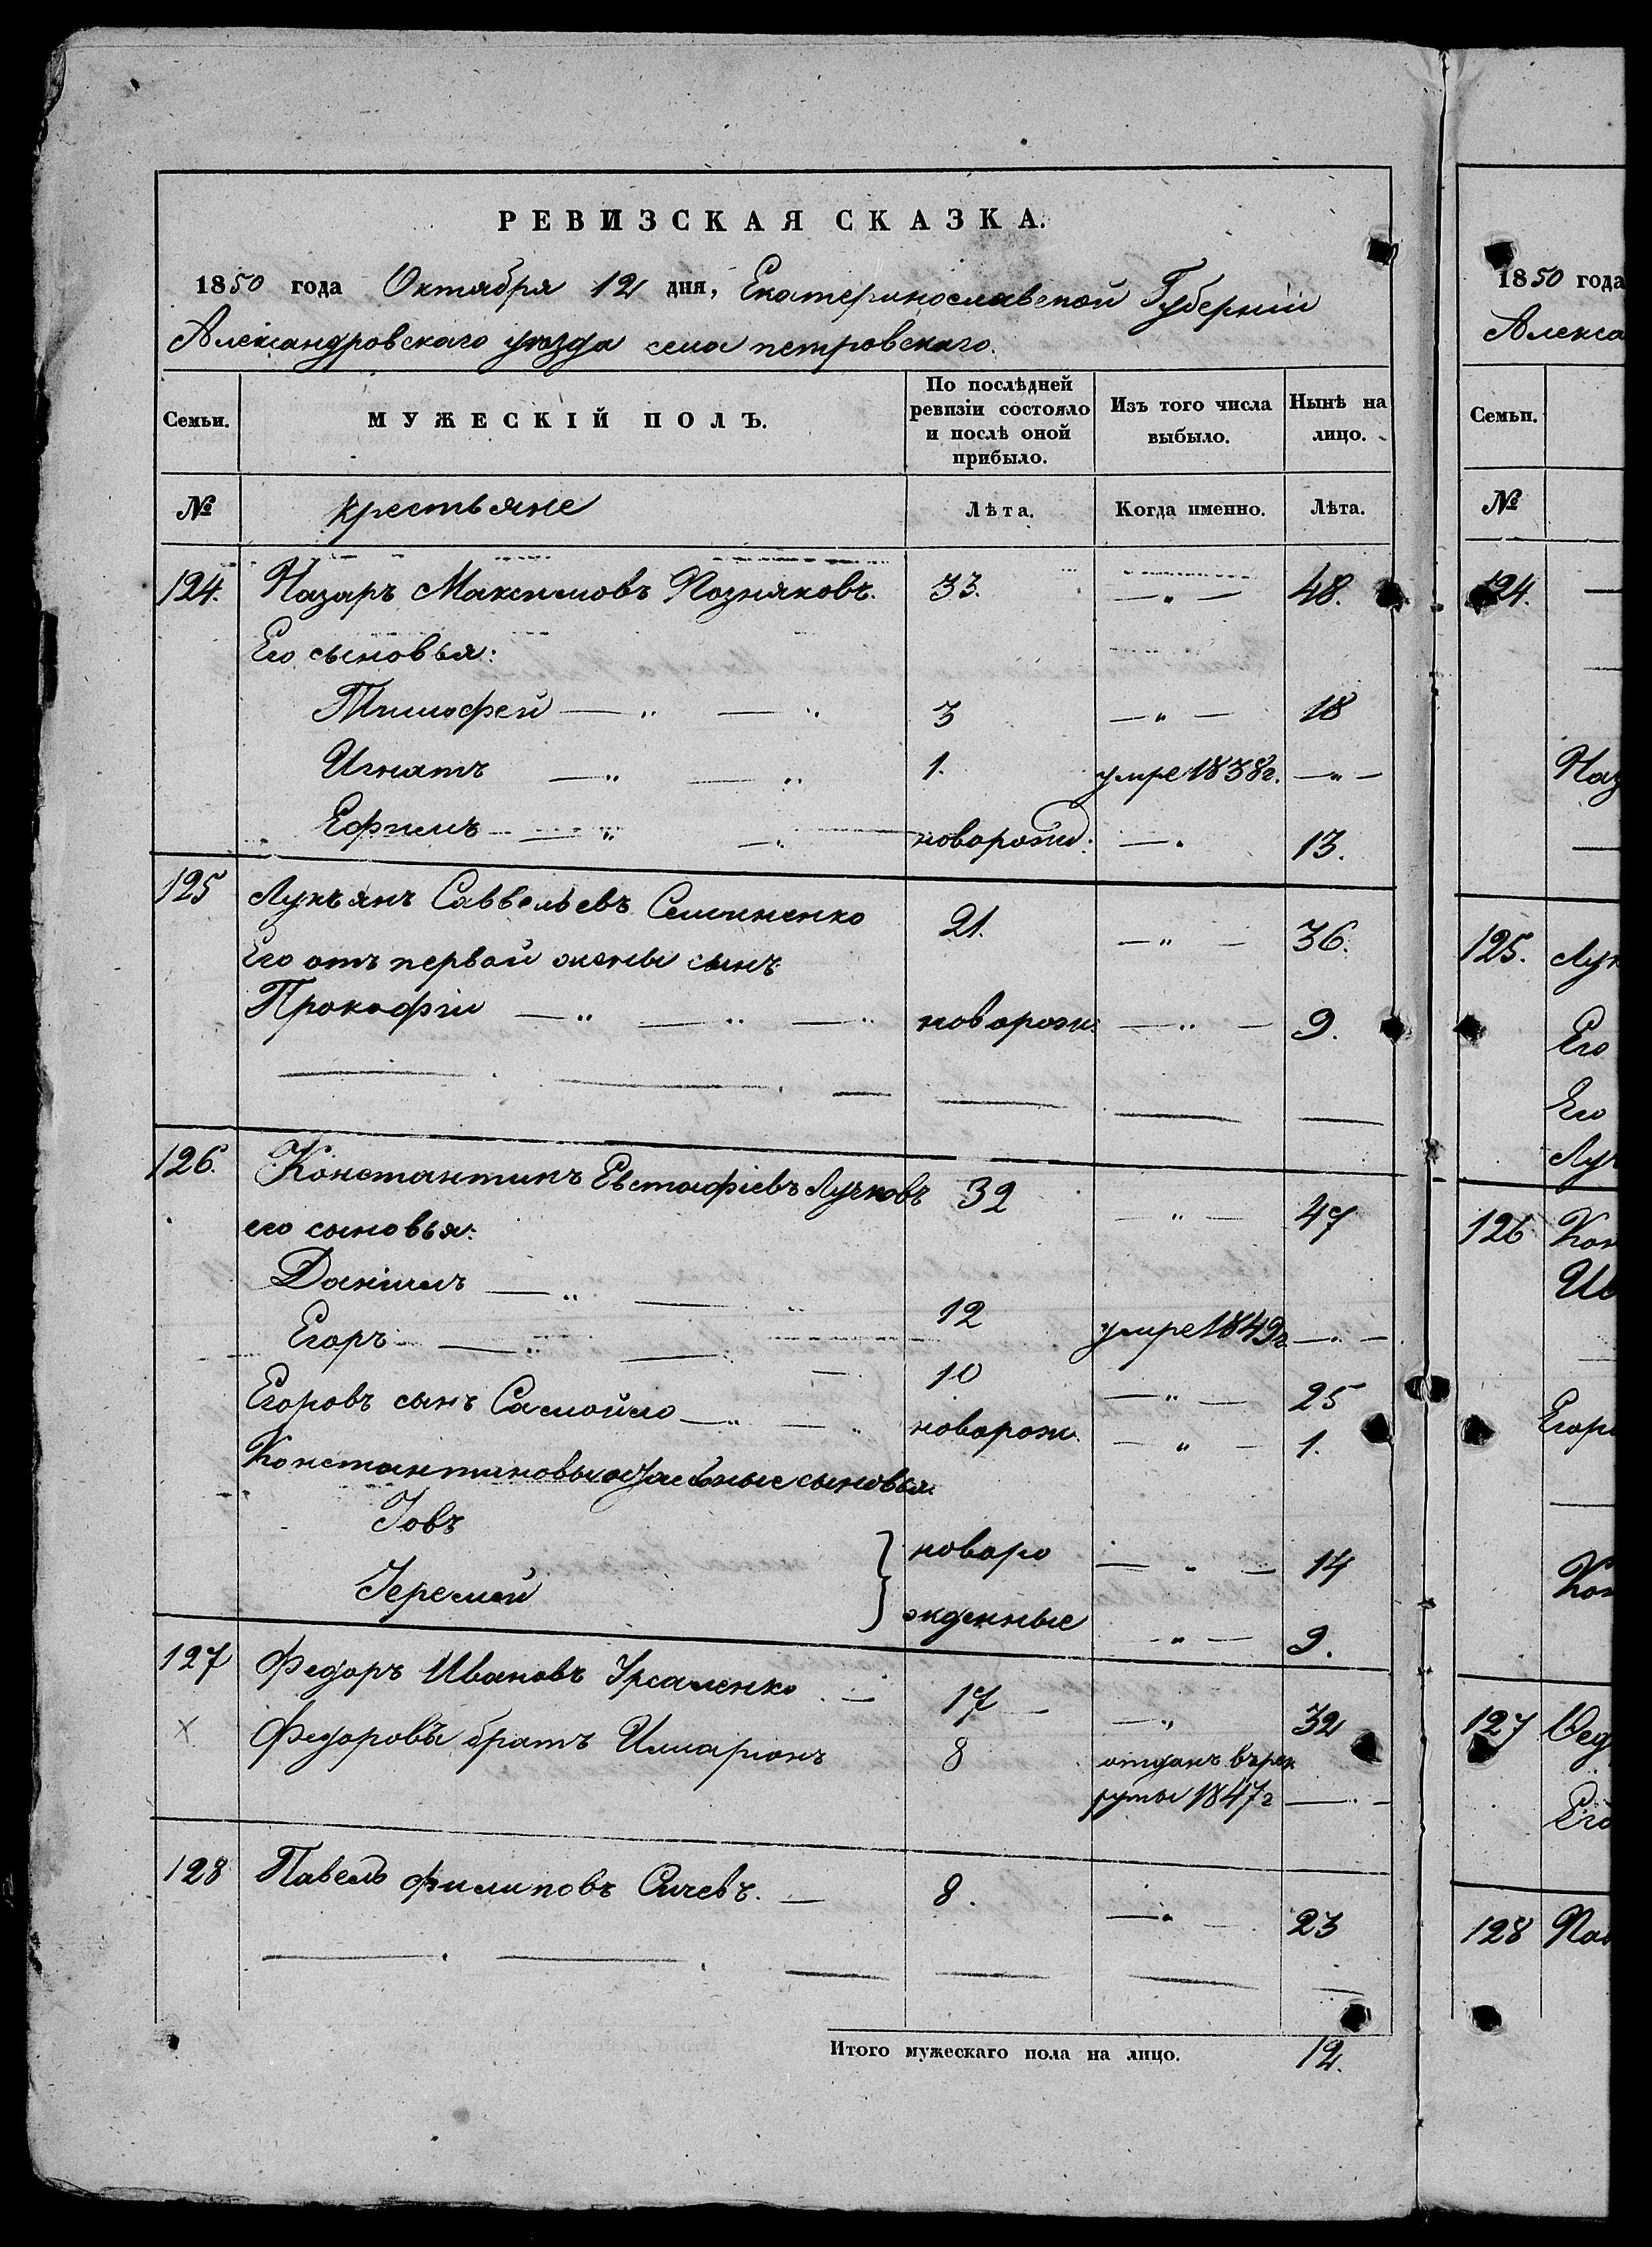 РЕВИЗСКАЯ СКАЗКА.
1850 года Октября 12 дня, Екатеринославской Губерніи
Александровского уѣзда села петровского.
Семьи. МУЖЕСКІЙ ПОЛЪ. По послѣдней ревизіи состояло и послѣ оной прибыло. Изъ того числа выбыло. Нынѣ на лицо.
№ крестьяне Лѣта. Когда именно. Лѣта.
124. Назаръ Максимовъ Позняковъ. 33. — " — 48.
Его сыновья:
Тимофей — " — " 3 — " — 18
Игнатъ — " — " 1. умре 1838г. — " —
Ефимъ — " — " новорожд: — " 13.
125 Лукъянъ Саввельевъ Семиненко 21. — " — 36.
Его отъ первой жены сынъ
Прокофій — " — " — " новорож: — " — 9.
126. Константинъ Евстафіевъ Лучковъ 32 — " — 47
его сыновья:
Даніилъ — " — " 12 умре 1849г — " —
Егоръ — " — " — 10 — " — 25
Егоровъ сынъ Самойло — " — " новорож. — " — 1.
Константиновы сыновья.
Іовъ новоро — " — 14
Іеремей жденные — " — 9.
127 Федоръ Ивановъ Урсаленко — 17 — " 32
Федоровъ братъ Илларіонъ 8 отданъ върек
руты 1847г — " —
128 Павелъ Филиповъ Сичевъ. — 8. — " — 23
Итого мужескаго пола на лицо. 12.
1850 года
Алекса
Семьи.
№
124.
Наз
125. Лук
Его
Его
Лук
126 Кон
Ив
Егор
Кон
127 Фед
Его
128 Пав